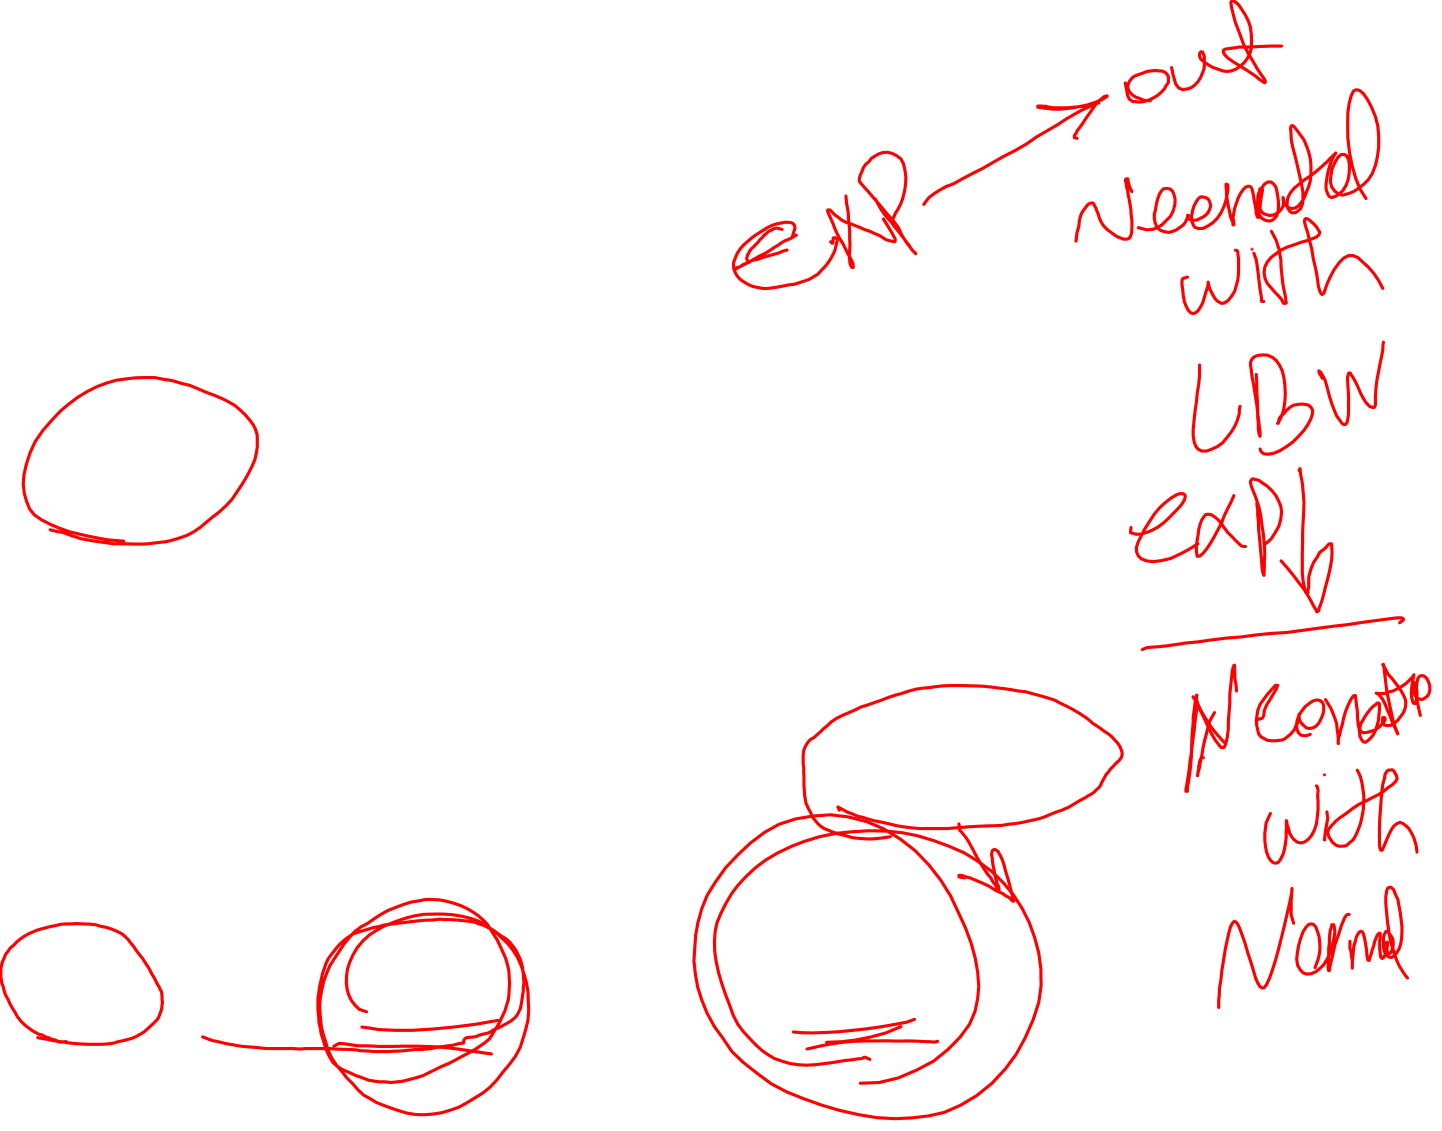 out
exp
Neonatal
with
LBW
exp
Neonate
with
Normal